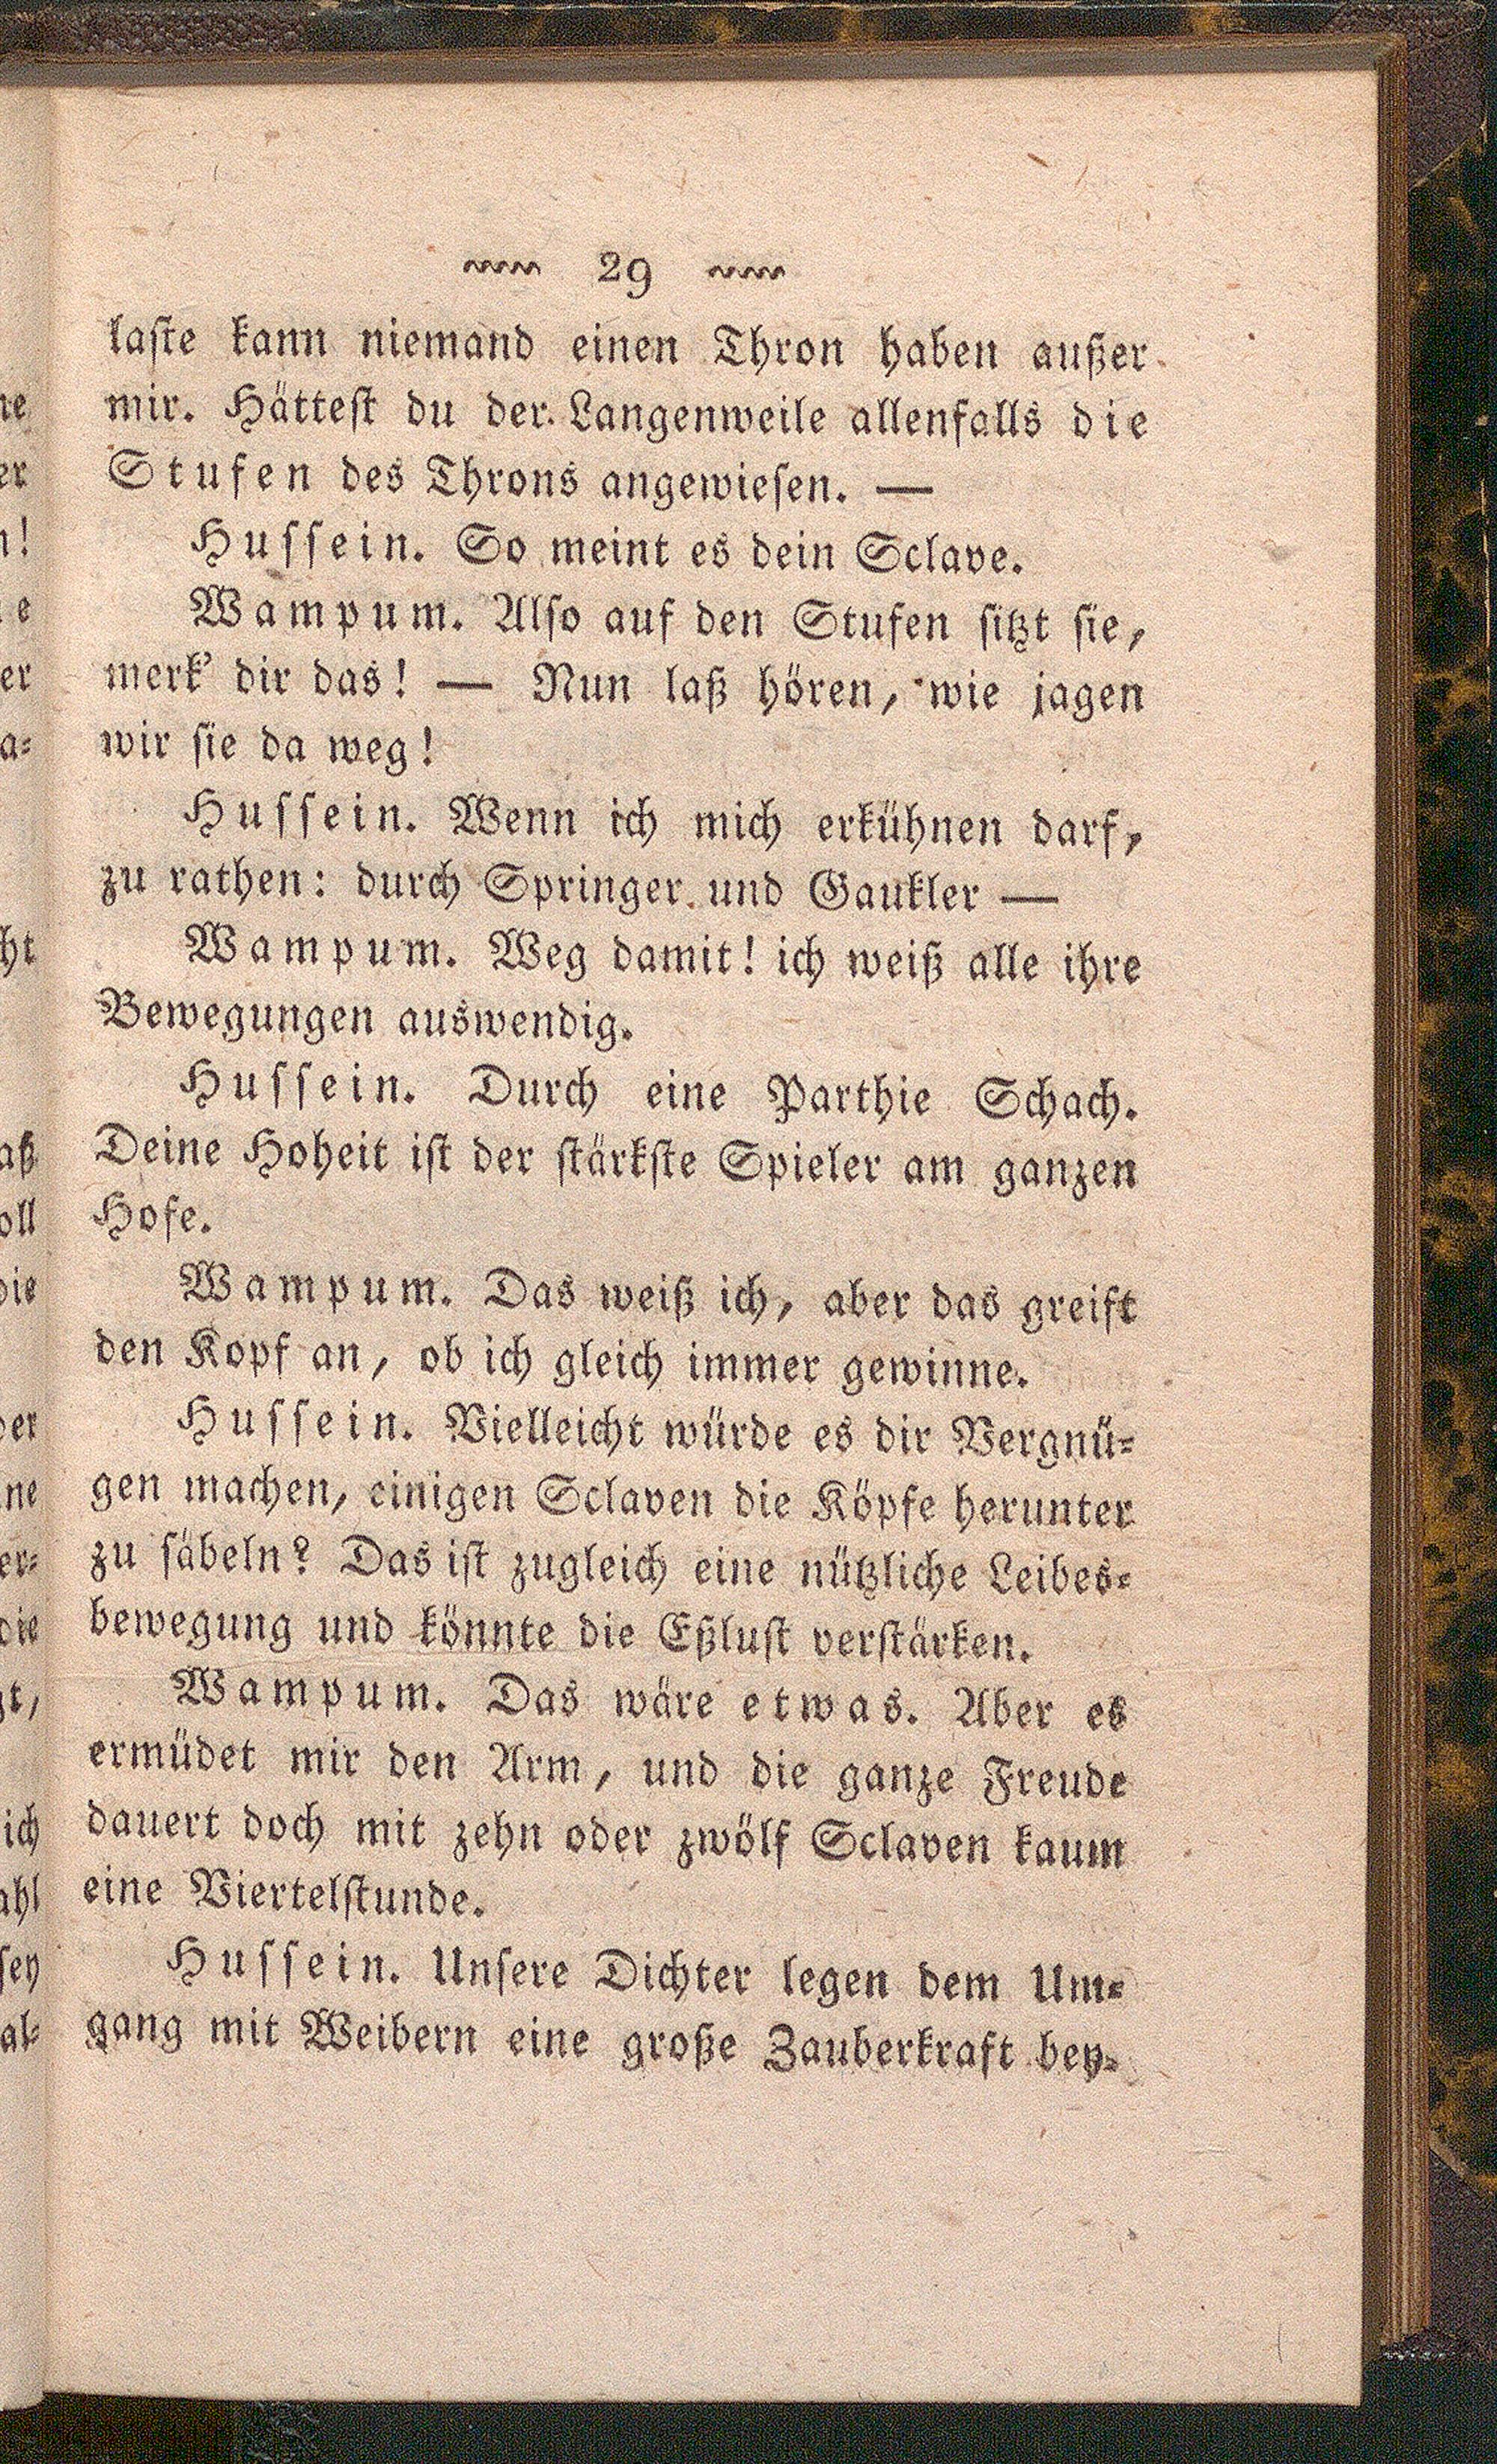 29
laſte kann niemand einen Thron haben außer
mir. Hätteſt du der Langenweile allenfalls die
Stufen des Throns angewieſen. —
Huſſein. So meint es dein Sclave.
Wampum. Alſo auf den Stufen ſitzt ſie,
merk' dir das! — Nun laß hören, wie jagen
wir ſie da weg!
Huſſein. Wenn ich mich erkühnen darf,
zu rathen: durch Springer und Gaukler —
Wampum. Weg damit! ich weiß alle ihre
Bewegungen auswendig.
Huſſein. Durch eine Parthie Schach.
Deine Hoheit iſt der ſtärkſte Spieler am ganzen
Hofe.
Wampum. Das weiß ich, aber das greift
den Kopf an, ob ich gleich immer gewinne.
Huſſein. Vielleicht würde es dir Vergnü-
gen machen, einigen Sclaven die Köpfe herunter
zu ſäbeln? Das iſt zugleich eine nützliche Leibes-
bewegung und könnte die Eßluſt verſtärken.
Wampum. Das wäre etwas. Aber es
ermüdet mir den Arm, und die ganze Freude
dauert doch mit zehn oder zwölf Sclaven kaum
eine Viertelſtunde.
Huſſein. Unſere Dichter legen dem Um-
gang mit Weibern eine große Zauberkraft bey-